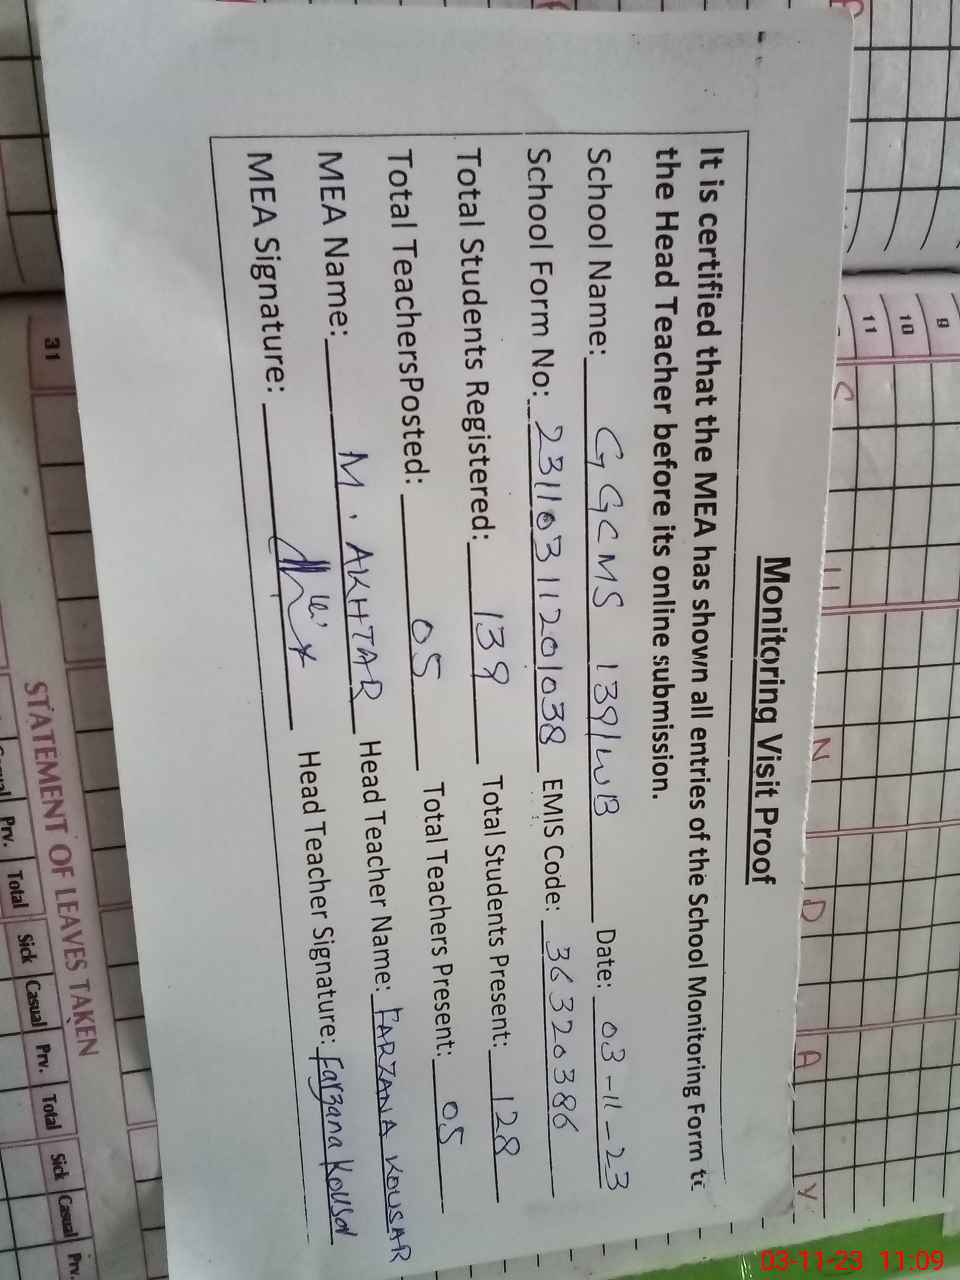 Monitoring Visit Proof
It is certified that the MEA has shown all entries of the School Monitoring Form to
the Head Teacher before its online submission.
School Name: GGCMS 139/WB Date: 03-11-23
School Form No: 2311031120 1038 EMIS Code: 36320386
Total Students Registered: 139 Total Students Present: 128
Total TeachersPosted: 05 Total Teachers Present: 05
MEA Name: M. AKHTAR Head Teacher Name: FARZANA KOUSAR
MEA Signature: Head Teacher Signature: Farzana Kousar
9
10
11
S U N D A Y
31
STATEMENT OF LEAVES TAKEN
Casual Prv. Total Sick Casual Prv. Total Sick Casual Prv.
03-11-23 11:09